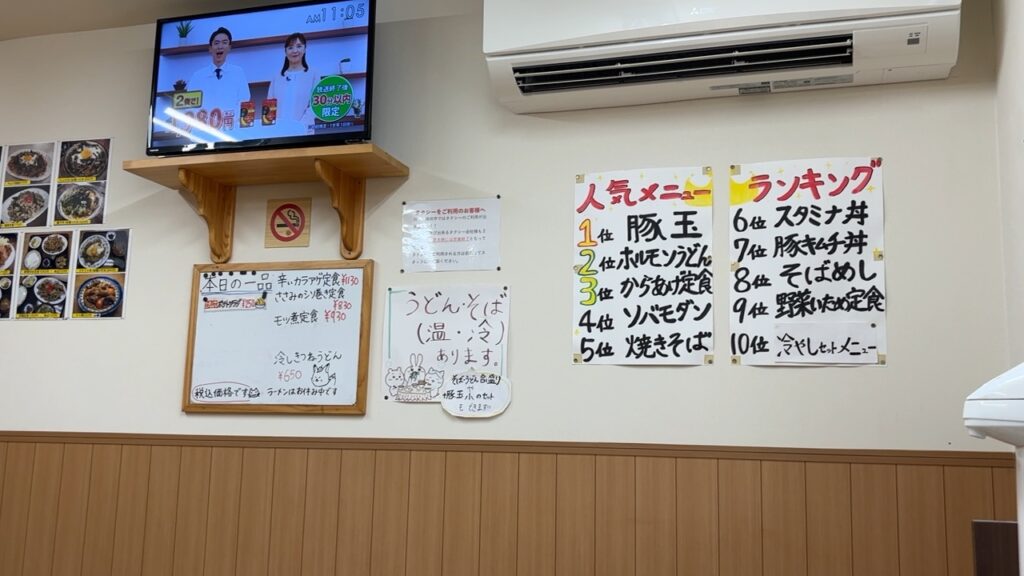 AM 11:05
2個で!
980円
放送終了後
30分以内
限定
タクシーをご利用のお客様へ
本日の一品
辛いカラアゲ定食 ¥1130
ささみのシソ巻き定食
¥830
モツ煮定食 ¥930
冷しきつねうどん
¥650
税込価格です
ラーメンはお休み中です
うどん・そば
(温・冷)
あります。
そば・うどん各盛り
豚玉小のセット
もできます!!
人気メニュー
1位 豚玉
2位 ホルモンうどん
3位 からあげ定食
4位 ソバモダン
5位 焼きそば
ランキング
6位 スタミナ丼
7位 豚キムチ丼
8位 そばめし
9位 野菜いため定食
10位 冷やしセットメニュー